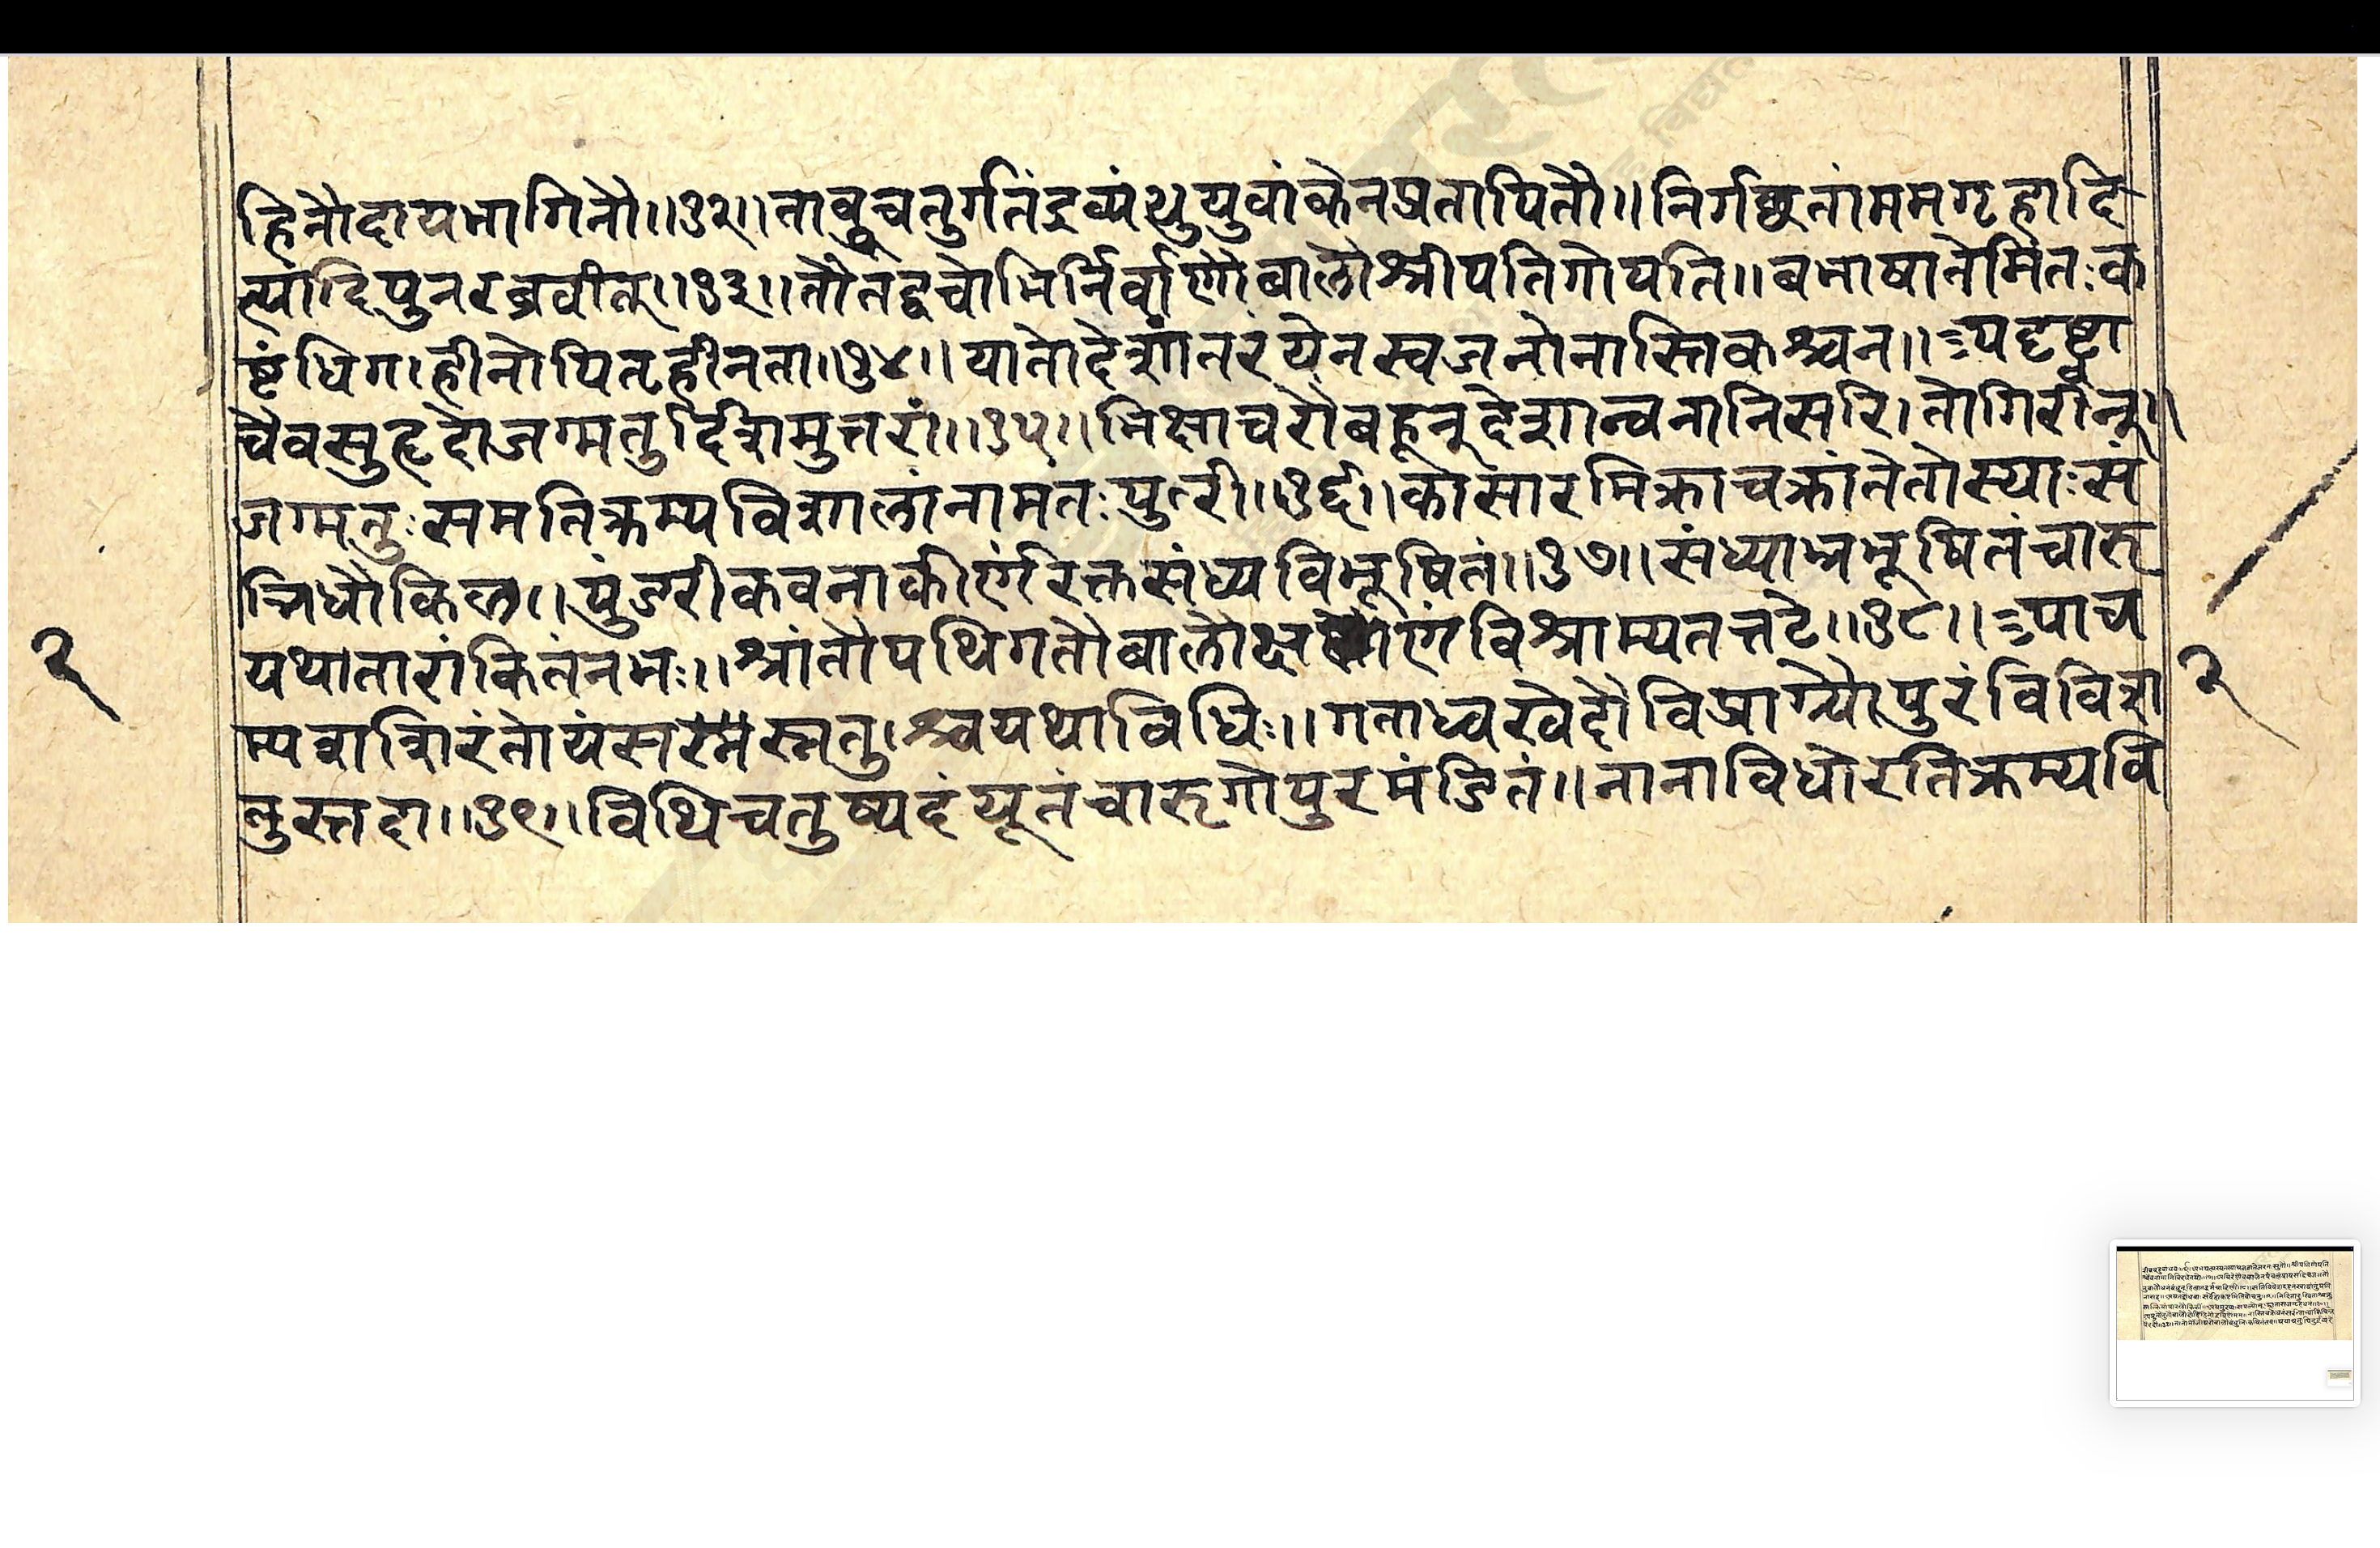 हिनौदायभागिनौ॥३२॥तावुचतुर्गतंद्रव्यंशुयुवांकेनप्रतापितौ॥निर्गछतांममगृहादि
त्यादिपुनरब्रवीत्॥३३॥तौतद्वचोभिर्निर्वाणौबालौश्रीपतिगोपति॥बभाषातेमितःक
ष्टंधिग।हीनोपितृहीनता॥३४॥यातोदेशांतरंयेनस्वजनोनास्तिकश्चन॥यदृष्ट्वा
चैवसुहृदोजग्मतुर्दिशमुत्तरां॥३५॥भिक्षाचरौबहून्देशान्वनानिसरि।तोगिरीन्॥
जग्मतुःसमतिक्रम्यविशालांनामतःपुरी॥३६॥कासारमिक्राचक्रांतेतोस्याःसं
न्निधौकिल॥पुंडरीकवनाकीर्णंरक्तसंध्यविभूषितं॥३७॥संध्याभ्रभूषितंचारु
यथातारांकितंनभः॥श्रांतौपथिगतौबालौविश्राम्यतत्तटे॥३८॥पाच
म्यशिशिरंतोयंसस्नतु।श्चयथाविधिः॥गताध्वखेदौविप्राग्र्यौपुरंविविश
तुस्तदा॥३९॥विथिचतुष्पदंयूतंचारुगोपुरमंडितं॥नानाविधोरतिक्रम्यवि
२
२